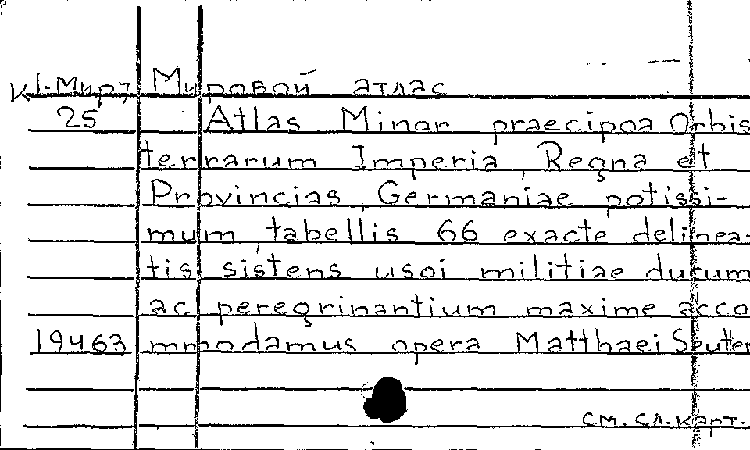 К1-Мир7 Мировой атлас
25 Atlas Minor praecipoa Orbis
terrarum Imperia, Regna et
Provincias, Germaniae potissi-
mum, tabellis 66 exacte delinea-
tis sistens usoi militiae ducum
ac peregrinantium maxime acco
19463 mmodamus opera Matthaei Seuter
см. сл. карт.